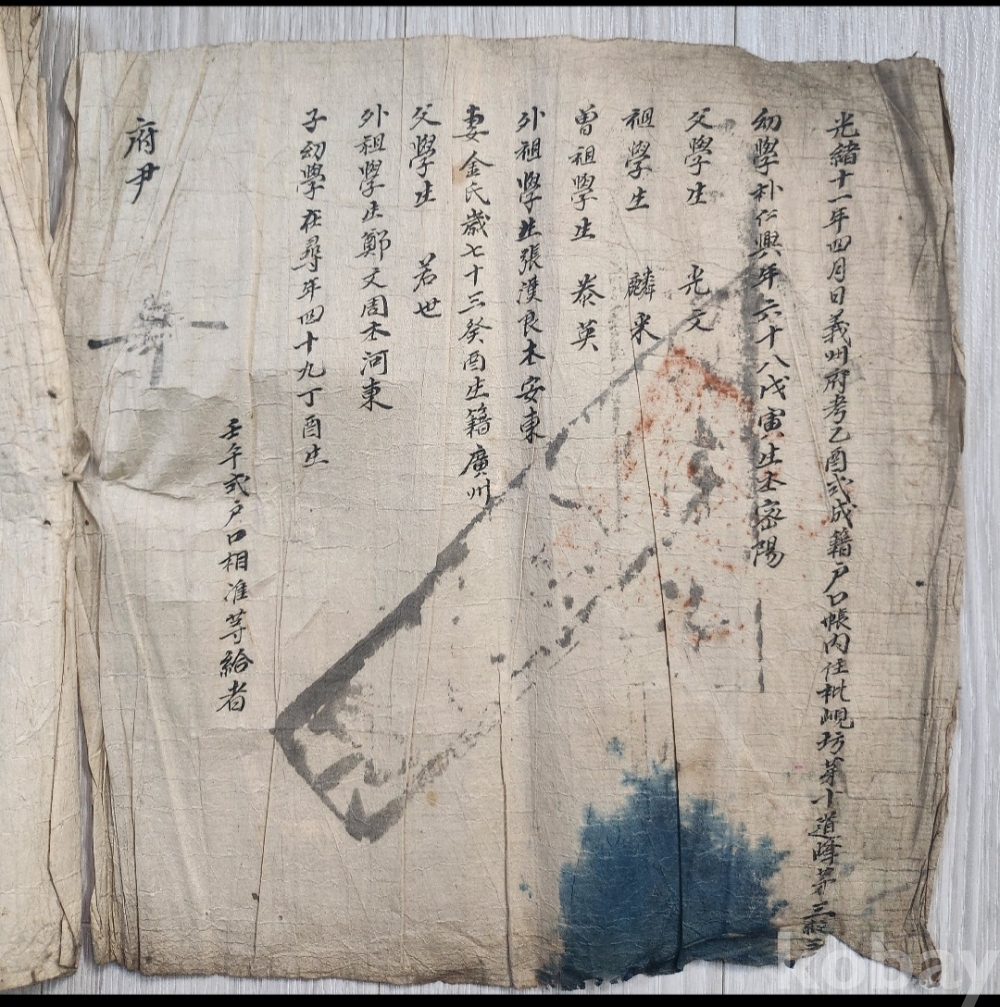 光緒十一年四月日義州府考乙酉式成籍戶口帳內住枇峴坊第十道陣第三統三
幼學朴仁興年六十八戊寅生本密陽
父學生 光文
祖學生 麟來
曾祖學生 泰英
外祖學生張漢良本安東
妻金氏歲七十三癸酉生籍廣州
父學生 若世
外祖學生鄭文周本河東
子幼學在尋年四十九丁酉生
壬午式戶口相准等給者
府尹
kobay